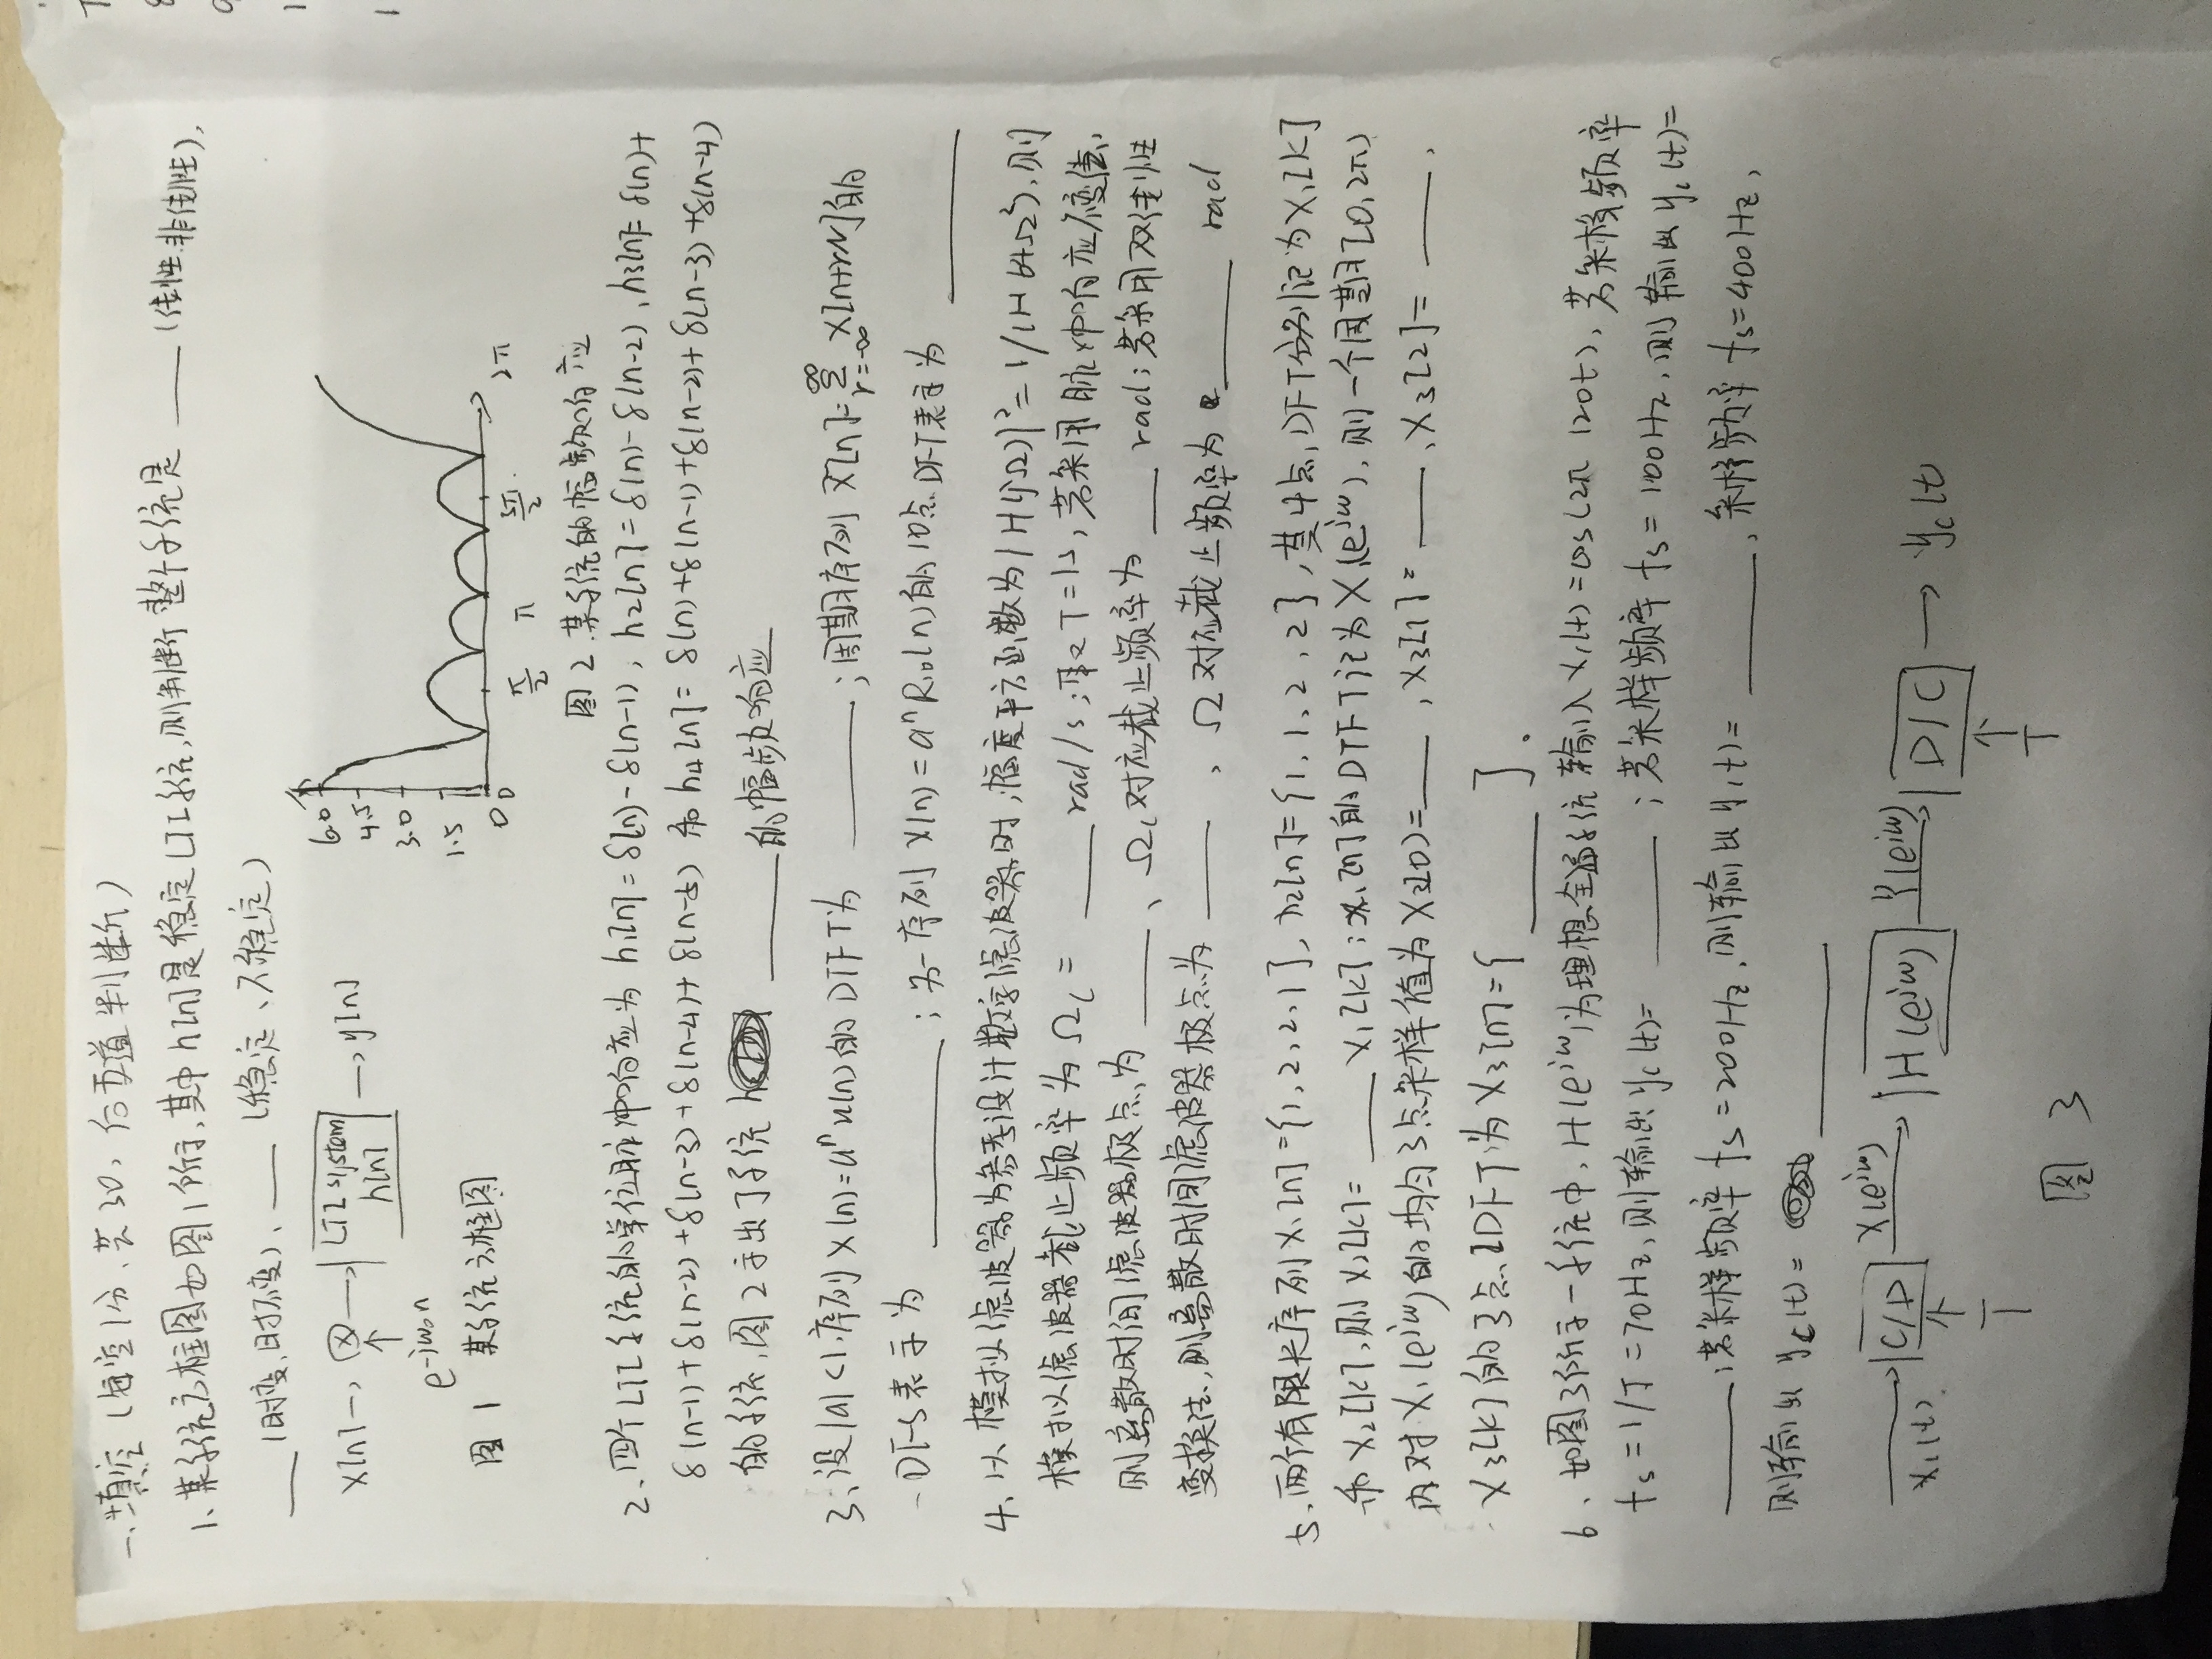 一、填空（每空1分、共30，后五道判断）
1、某系统方框图如图1所示,其中h[n]是稳定LTI系统,则判断整个系统是____（线性.非线性),
____（时变,时不变)、____（稳定、不稳定）
x[n]→ ⊗ → LTI system h[n] → y[n]
e^{-jω₀n}
图1 某系统方框图
6.0
4.5
3.0
1.5
0 0 π/2 π 3π/2 2π
图2.某系统的幅频响应
2、四个LTI系统的单位脉冲响应为 h₁[n]=δ(n)-δ(n-1), h₂[n]=δ(n)-δ(n-2),h₃[n]=δ(n)+
δ(n-1)+δ(n-2)+δ(n-3)+δ(n-4)+δ(n-5) 和 h₄[n]=δ(n)+δ(n-1)+δ(n-2)+δ(n-3)+δ(n-4)
的系统,图2示出了系统 ______的幅频响应
3、设|a|<1,序列x(n)=aⁿu(n)的DTFT为 ______;周期序列 x̃[n]=Σ_{r=-∞}^{∞} x[n+rN]的
DFS表示为 ______;另一序列 x(n)=aⁿR₁₀(n)的10点DFT表示为 ______
4、以模拟滤波器为参考设计数字滤波器时,幅度平方函数为|H(jΩ)|²=1/(1+64Ω²),则
模拟滤波器截止频率为Ωc= ____ rad/s;取T=1s,若采用脉冲响应不变法,
则离散时间滤波器极点为 ____、Ωc对应截止频率为 ____ rad;若采用双线性
变换法,则离散时间滤波器极点为 ____ , Ω对应截止频率为 ____ rad
5、两个有限长序列x₁[n]={1,2,2,1},x₂[n]={1,1,2,2},其4点DFT分别记为X₁[k]
和X₂[k],则X₂[k]= ____ X₁[k];x₁[n]的DTFT记为X₁(e^{jω}),则一个周期[0,2π)
内对X₁(e^{jω})的均匀3点采样值为X₃[0)=____ ,X₃[1]= ____ ,X₃[2]= ____ ,
X₃[k]的3点IDFT为X₃[n]={ ____ }.
6、如图3所示一系统中,H(e^{jω})为理想全通系统输入x₁(t)=cos(2π 120t),若采样频率
fs=1/T=70Hz,则输出yc(t)= ______;若采样频率fs=100Hz,则输出yc(t)=
______;若采样频率fs=200Hz,则输出y(t)= ______,采样频率fs=400Hz,
则输出yc(t)= ______
x₁(t) C/D X(e^{jω}) H(e^{jω}) Y(e^{jω}) D/C → yc(t)
T T
图3